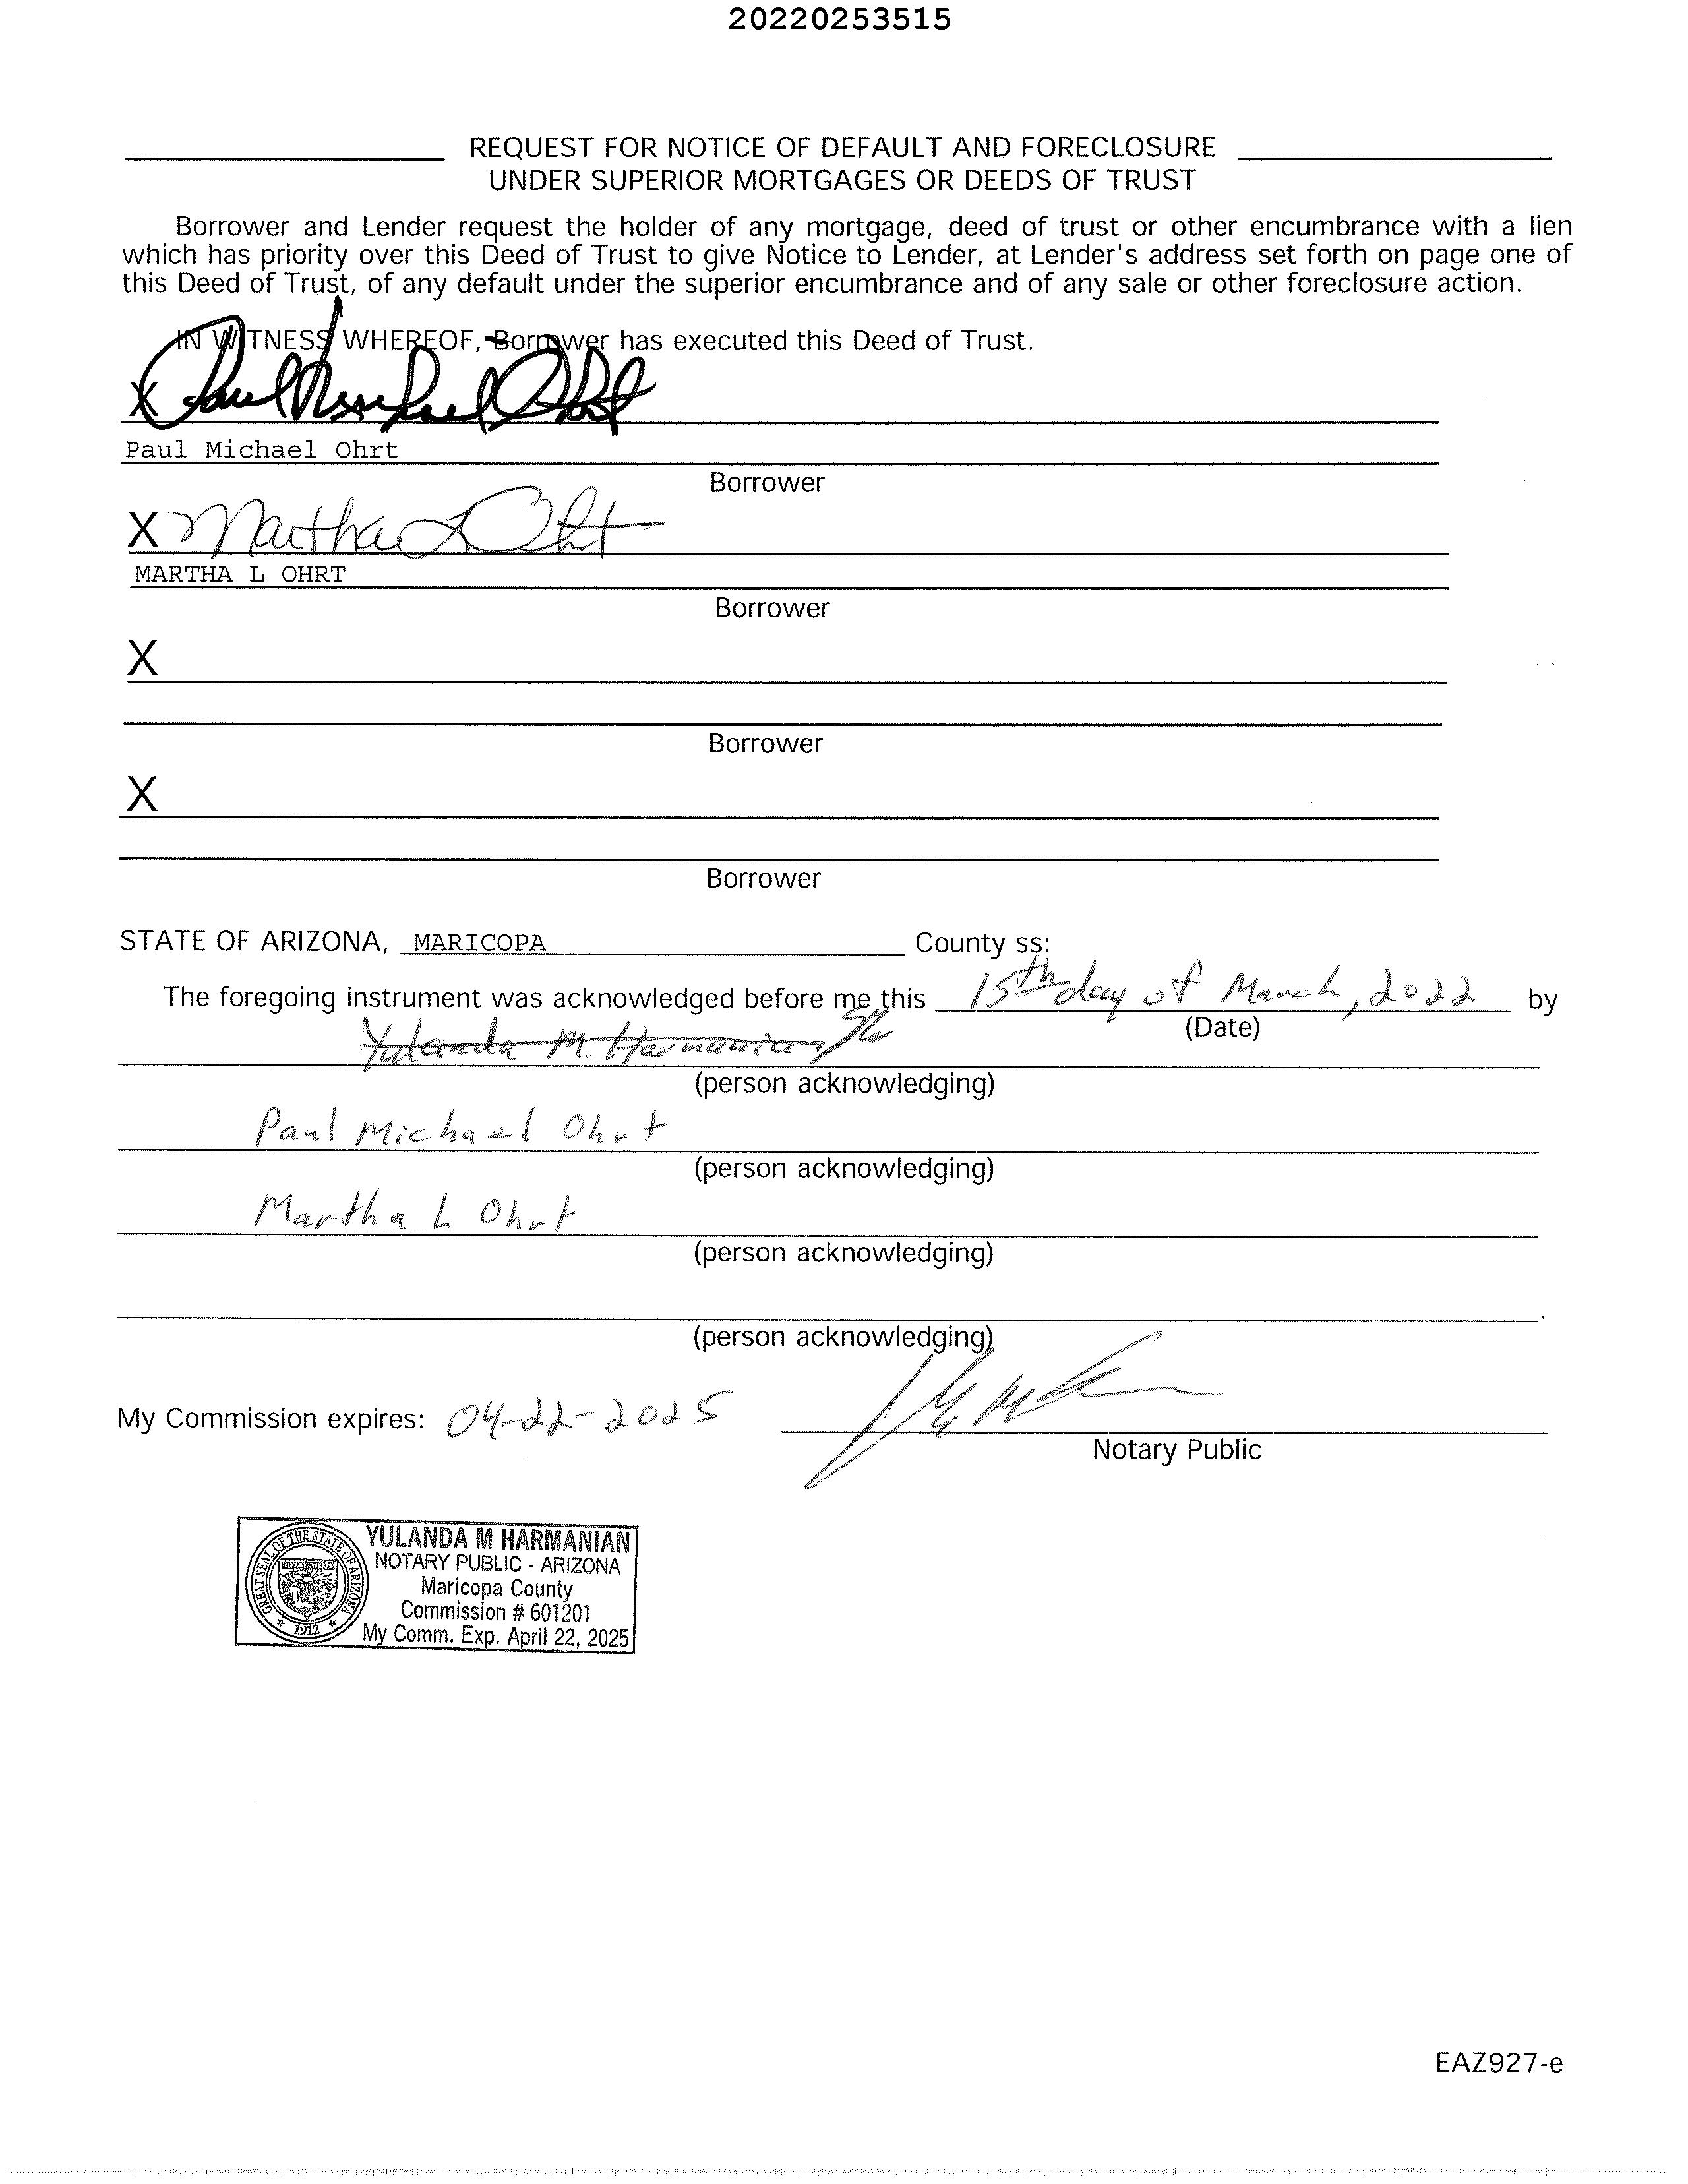 20220253515
REQUEST FOR NOTICE OF DEFAULT AND FORECLOSURE
UNDER SUPERIOR MORTGAGES OR DEEDS OF TRUST
Borrower and Lender request the holder of any mortgage, deed of trust or other encumbrance with a lien
which has priority over this Deed of Trust to give Notice to Lender, at Lender's address set forth on page one of
this Deed of Trust, of any default under the superior encumbrance and of any sale or other foreclosure action.
IN WITNESS WHEREOF, Borrower has executed this Deed of Trust.
X Paul Michael Ohrt
Paul Michael Ohrt
Borrower
X Martha L Ohrt
MARTHA L OHRT
Borrower
X
Borrower
X
Borrower
STATE OF ARIZONA, MARICOPA County ss:
The foregoing instrument was acknowledged before me this 15th day of March, 2022 by
(Date)
Yulanda M. Harmanian
(person acknowledging)
Paul Michael Ohrt
(person acknowledging)
Martha L Ohrt
(person acknowledging)
(person acknowledging)
My Commission expires: 04-22-2025
Notary Public
YULANDA M HARMANIAN
NOTARY PUBLIC - ARIZONA
Maricopa County
Commission # 601201
My Comm. Exp. April 22, 2025
GREAT SEAL OF THE STATE OF ARIZONA
1912
EAZ927-e